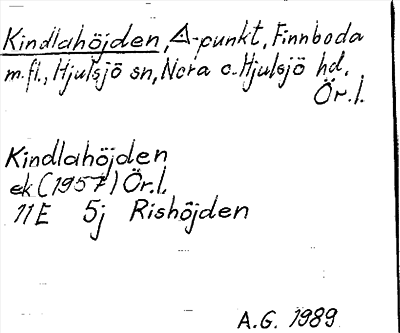 Kindlahöjden, △-punkt, Finnboda
m.fl., Hjulsjö sn, Nora o. Hjulsjö hd,
Ör.l.
Kindlahöjden
ek (1957) Ör.l.
11E 5j Rishöjden
A.G. 1989